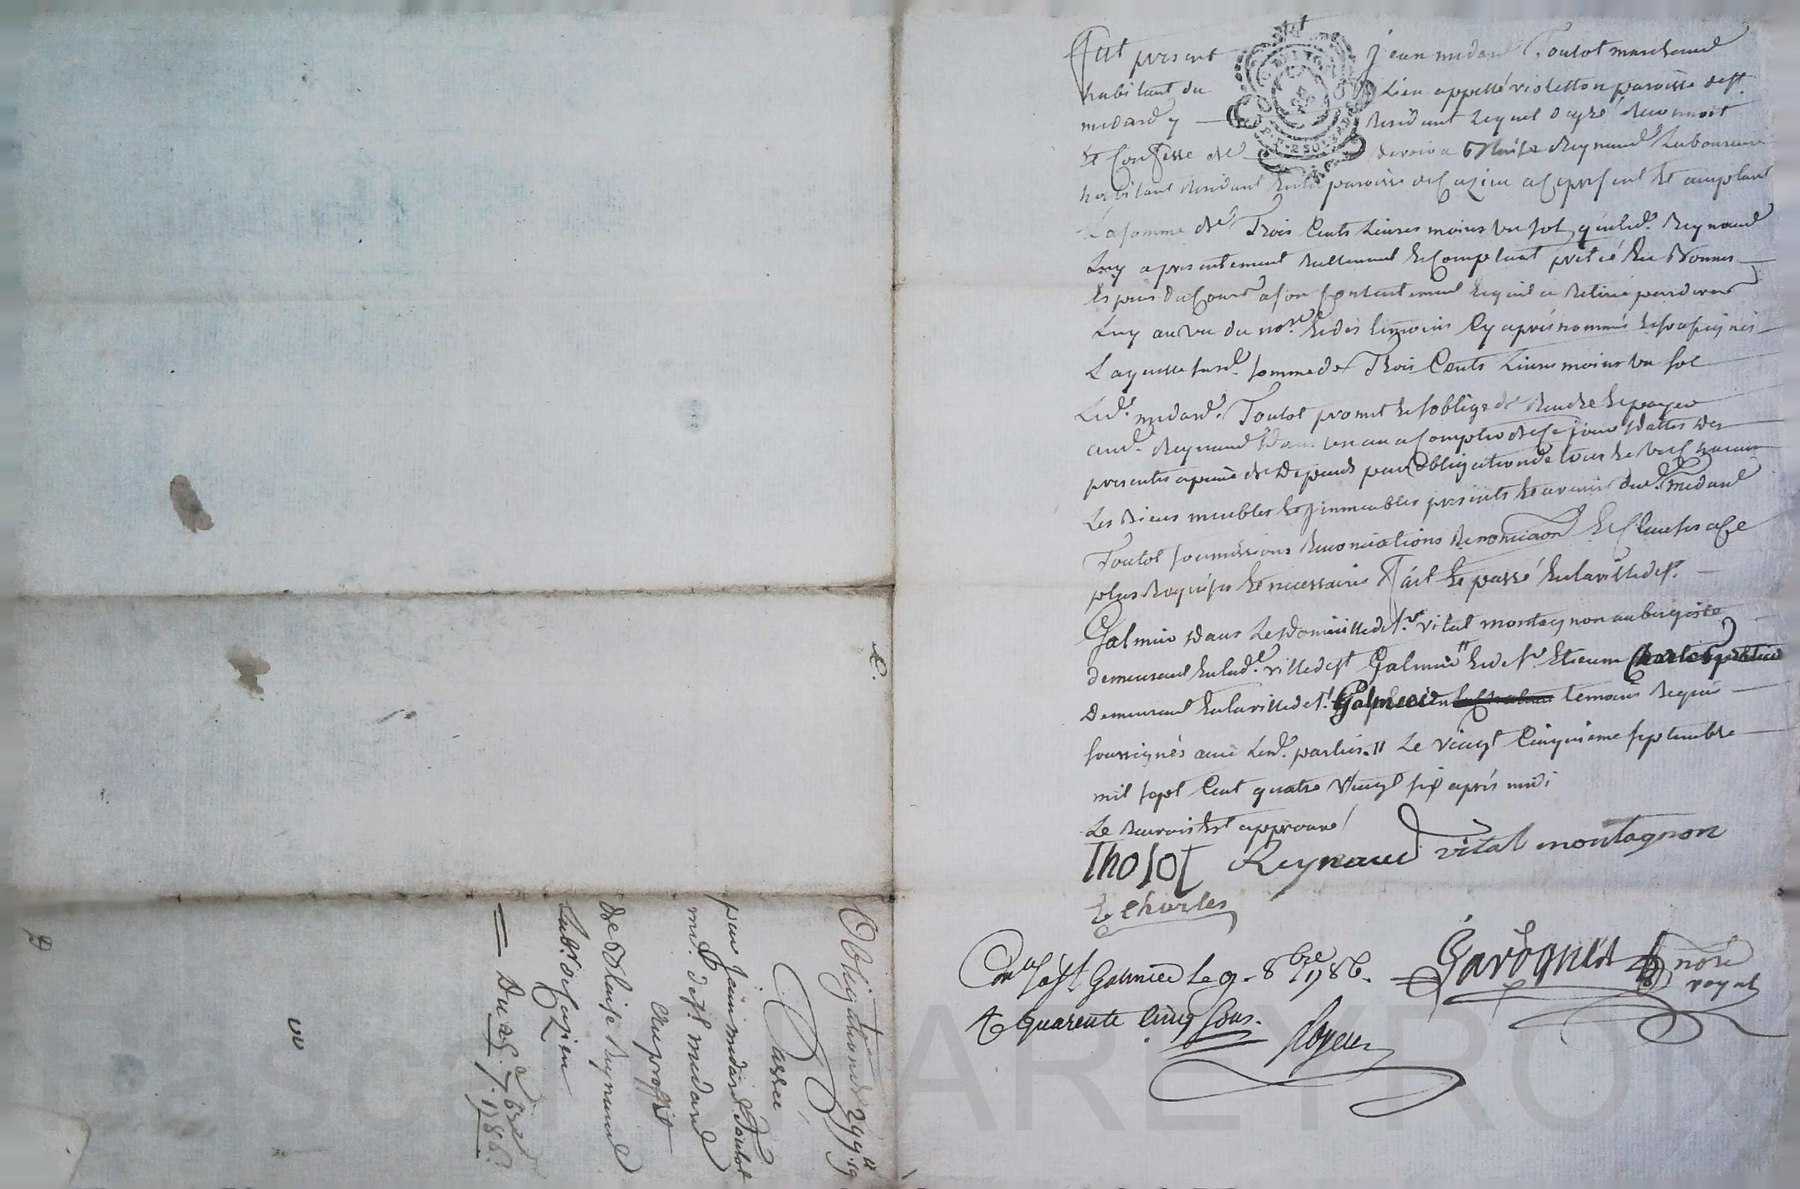 Fut present jean midard Toulot marchand
habitant du Lieu appellé violetton paroisse de st.
midard y residant Lequel de gré reconnoit
Et Confesse devoir a Blaise Reynaud Laboureur
habitant residant en la paroisse de Cazieu acceptant
La somme de Trois Cents Livres moins un sol qu'led. Reynaud
Luy a presentement reellement et Comptant preté en bonnes
Espéces du Cours a son Contentement Lequel a retiré pardevers
Luy au vu du nore. et des témoins Cy aprés nommés et soussignés
Laquelle susd. somme de Trois Cents Livres moins un sol
Led. midard Toulot promet et s'oblige de rendre et payer
aud. Reynaud dans un an a Compter de Ce jour dattes des
presentes a peine de depends par obligation de tous et un chacun
Les biens meubles et immeubles presents et avenir dud. midard
Toulot soumissions renonciations et Clauses a Ce
plus requises et necessaires fait et passé en la ville de st.
Galmier dans Le domicille de sr. vital montagnon aubergiste
demeurant en lad. ville de st Galmier et de sr. Etienne Charles
demeurant en la ville de st Galmier temoins requis
soussignés avec Lesd. parties. Le vingt Cinquieme septembre
mil sept Cent quatre vingt six aprés midi
Le renvoi est approuvé
Tholot Reynaud vital montagnon
E Charles
Garognes nore
royal
Conle. a st Galmier le 9. 8bre 1786.
R quarente Cinq sous.
Royer
Obligation de 299.lt 19
Passée
par Jean midard Toulot
md. de st midard
au proffit
de Blaise Reynaud
Labr. de Cazieu
Du 25 7bre 1786